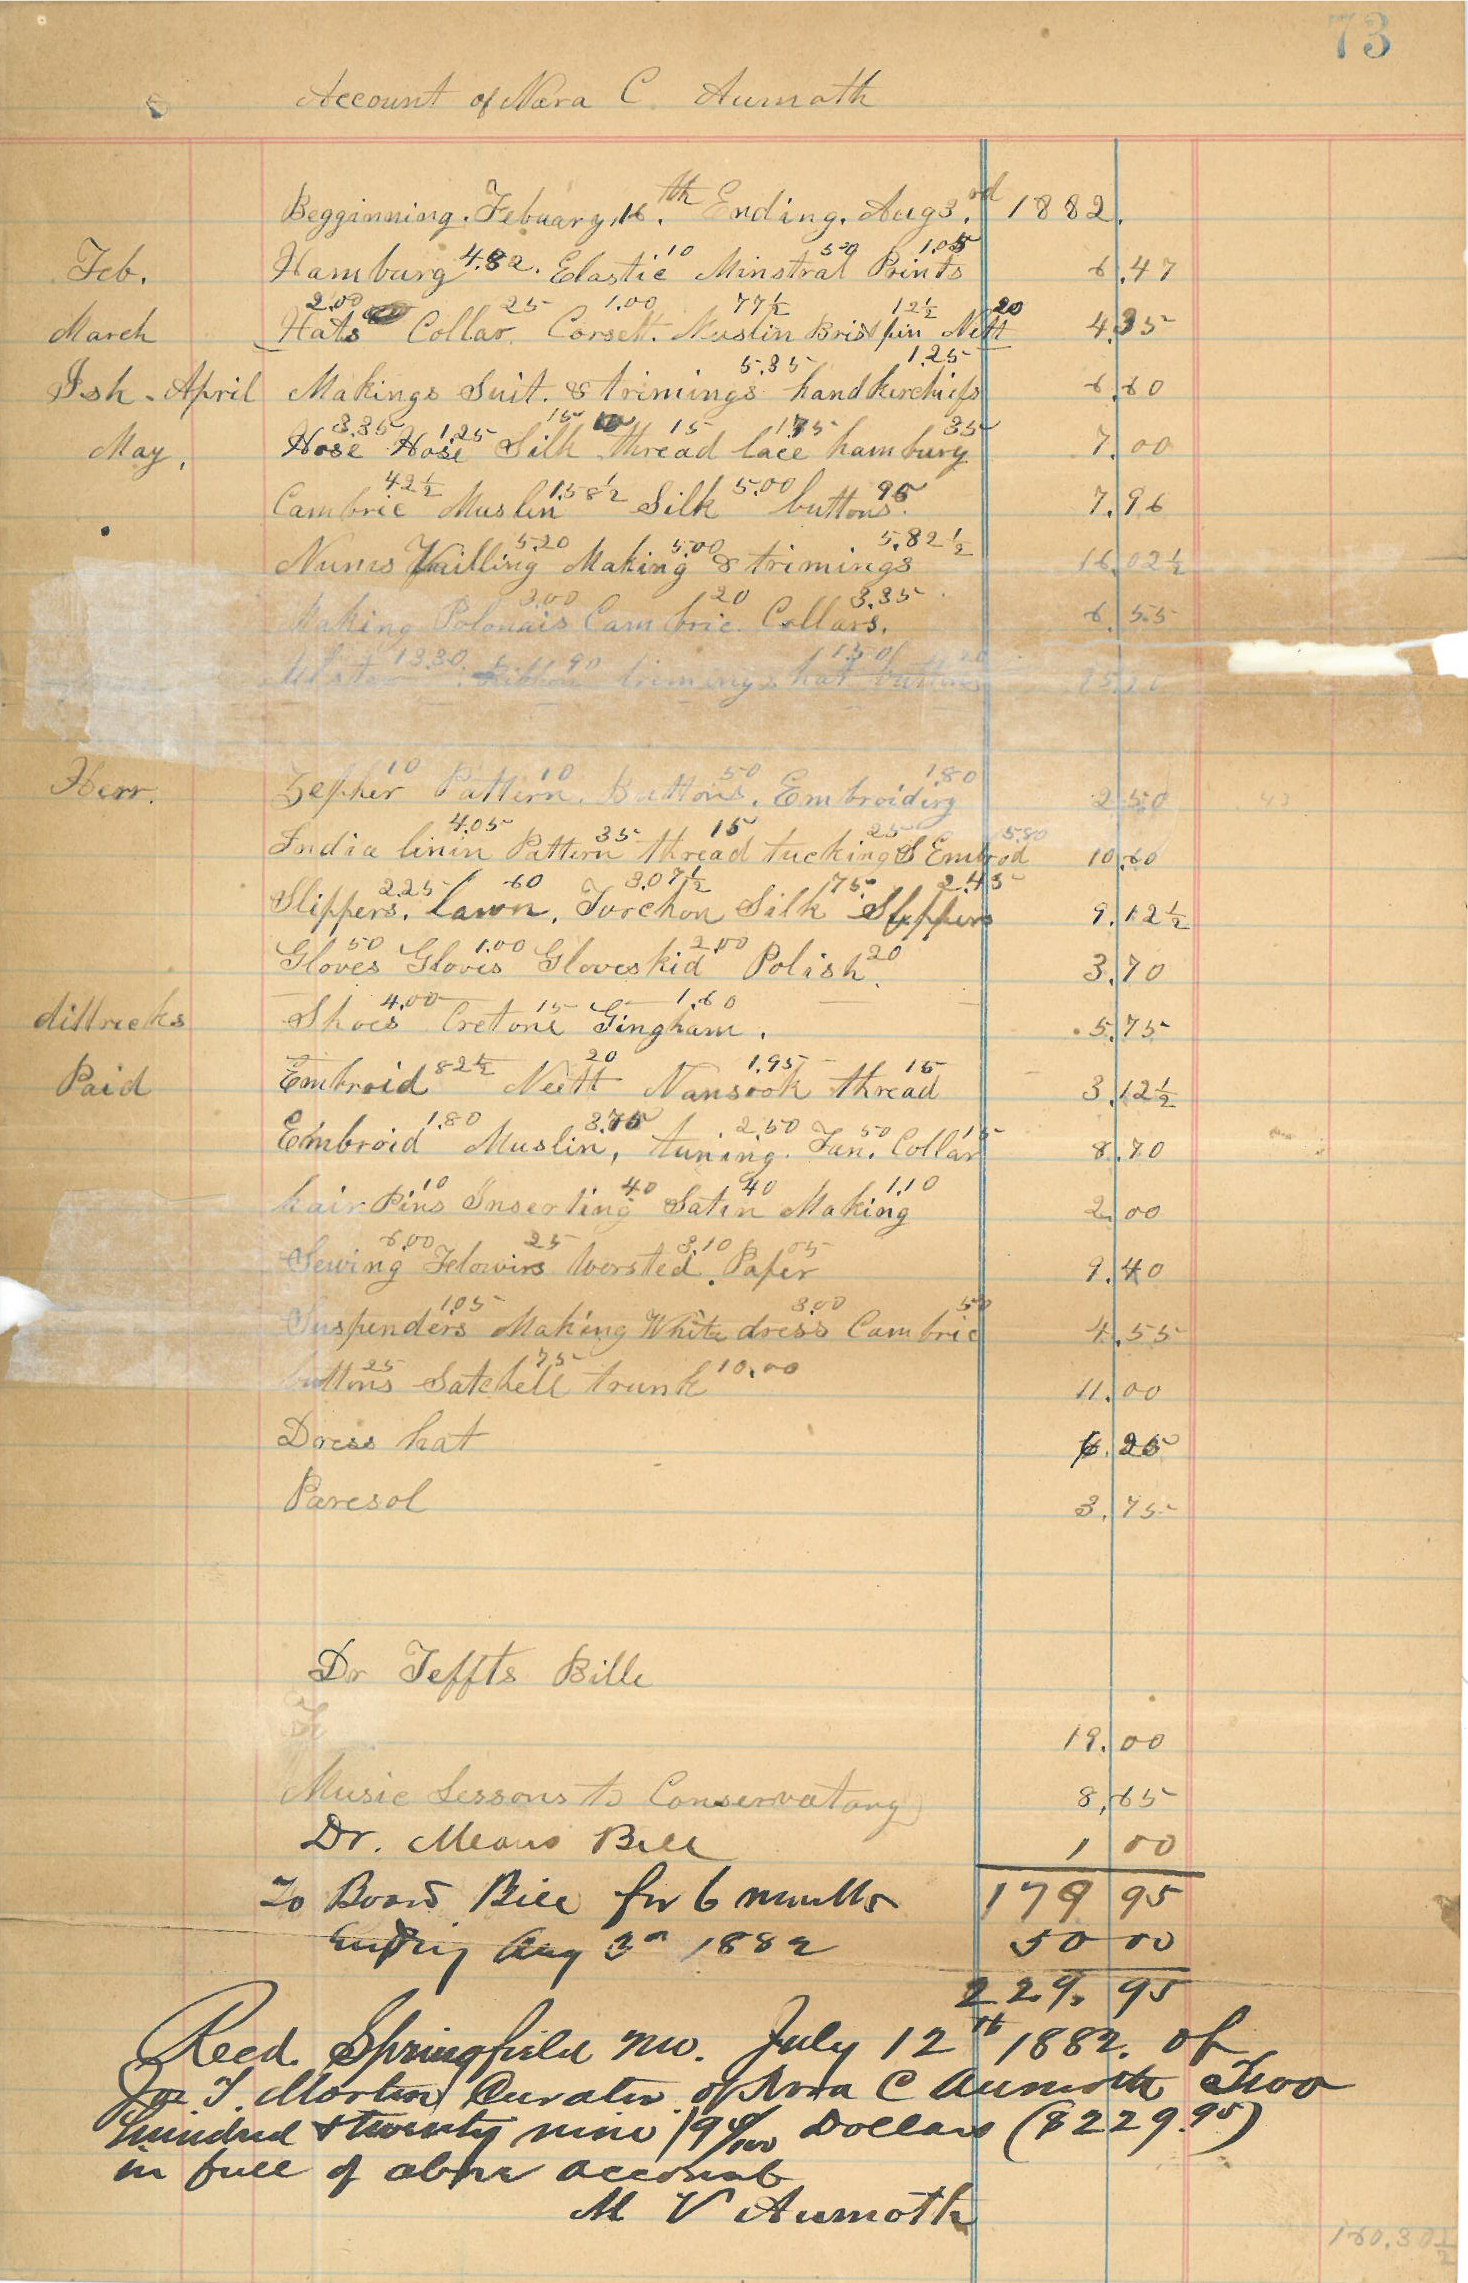 73
Account of Nora C. Aumoth
Begginning. Febuary, 16.th Ending. Aug 3.rd 1882.
Feb. Hamburg 4.82. Elastic 10 Minstral 50 Prints 1.05 6.47
March Hats 2.00 Collar 25 Corsett. 1.00 Muslin 77½ Brist pin 12½ Nett 20 4.35
Ish - April Makings Suit. & trimings 5.35 handkerchiefs 1.25 6.60
May, Hose 3.35 Hose 1.25 Silk 15 10 thread 15 lace 1.75 hamburg 35 7.00
Cambric 42½ Muslin 1.58½ Silk 5.00 buttons 95 7.96
Nunis Vailling 5.20 Making 5.00 & trimings 5.82½ 16.02½
Making Polonais 3.00 Cambric 20 Collars. 3.35 6.55
Ulster 13.30 Ribbon 90 trimings hat 1.50 buttons 20
Herr. Zepher 10 Pattern. 10 Buttons. 50 Embroidirg 1.80 2.50
India linin 4.05 Pattern 35 thread 15 tucking 25 & Embrod 5.80 10.60
Slippers. 2.25 lawn, 60 Torchon 3.07½ Silk 75 Slippers 2.45 9.12½
Gloves 50 Glovis 1.00 Gloveskid 2.00 Polish. 20 3.70
dittricks Shoes 4.00 Cretone 15 Gingham. 1.60 5.75
Paid Embroid 82½ Neett 20 Nansook 1.95 thread 15 3.12½
Embroid 1.80 Muslin, 3.75 tuning. 2.50 Fan. 50 Collar 15 8.70
hair Pins 10 Inserting 40 Satin 40 Making 1.10 2.00
Sewing 6.00 Flowirs 25 Worsted. 3.10 Paper 05 9.40
Suspenders 1.05 Making White dress 3.00 Cambric 50 4.55
buttons 25 Satchell 75 trunk 10.00 11.00
Dress hat 6.25
Paresol 3.75
Dr Teffts Bille
19.00
Music Lessons to Conservatory 8.65
Dr. Means Bill 1 00
To Board Bill for 6 months 179 95
Ending Aug 3rd 1882 50 00
229. 95
Recd. Springfield Mo. July 12th 1882. of
Jos T. Morton Curator of Nora C Aumoth Two
hundred & twenty nine 95/100 Dollars ($229.95)
in full of above account
M V Aumoth
160.30½